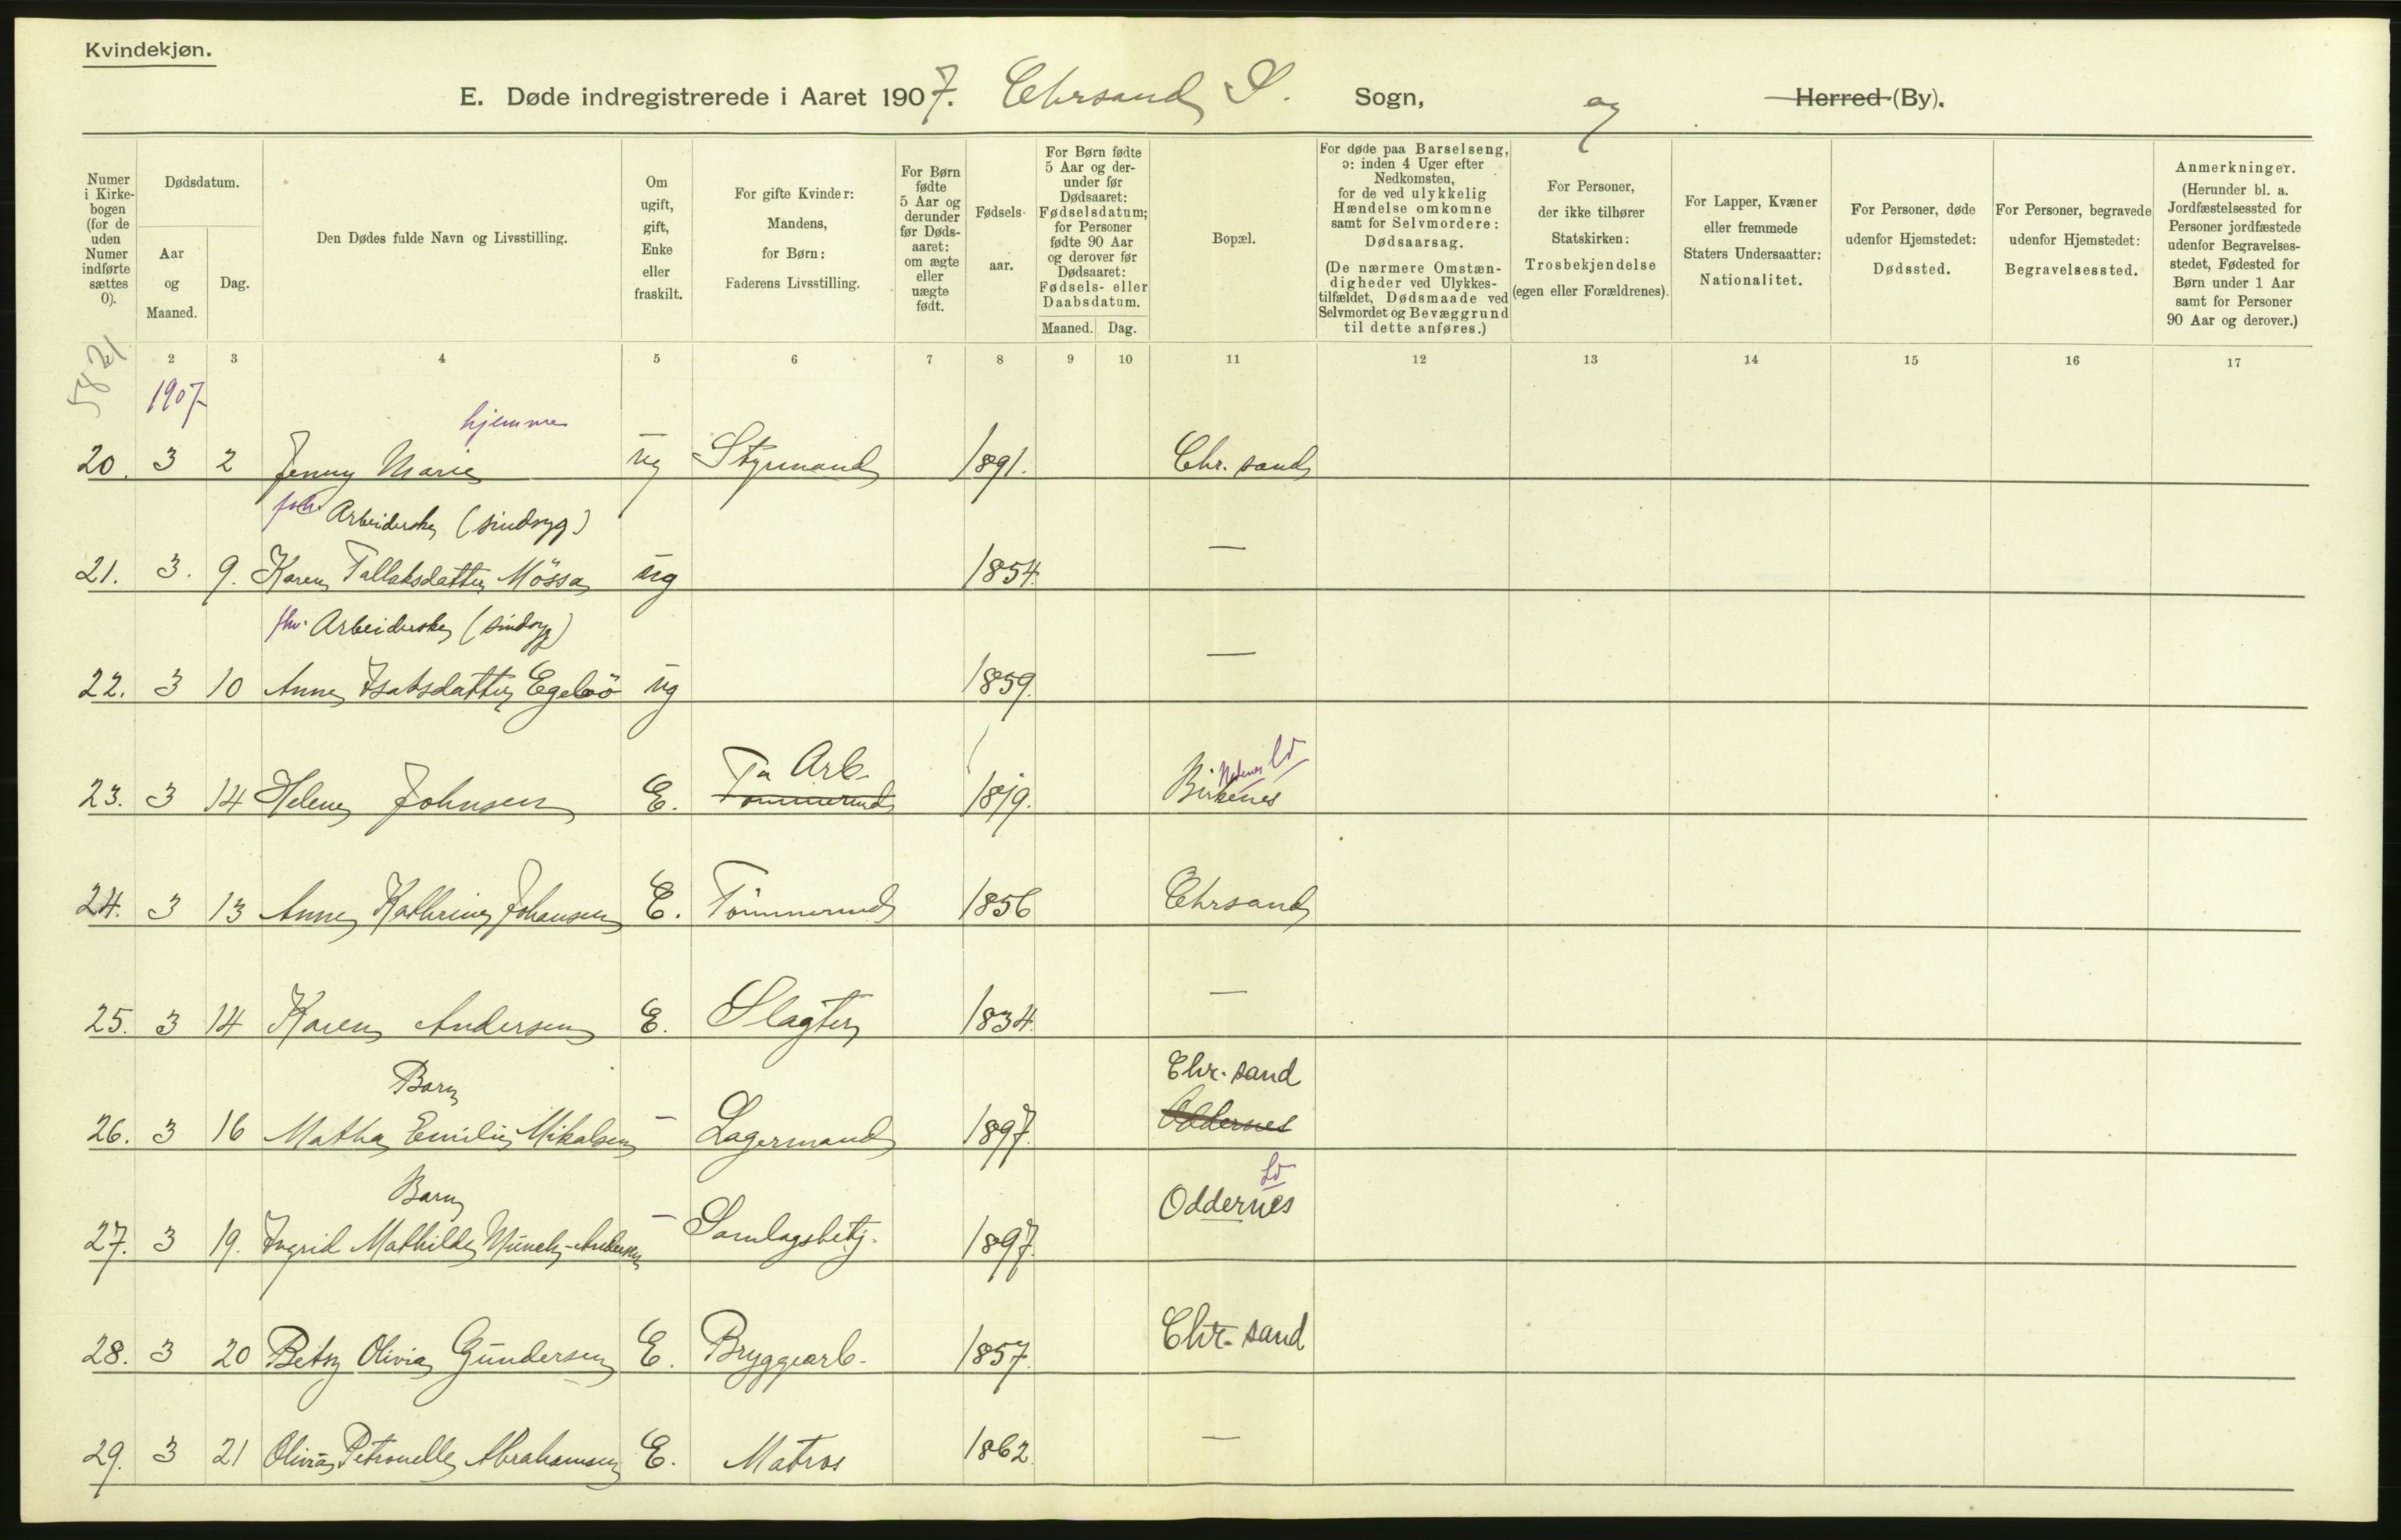 Kvindekjøn.
E. Døde indregistrerede i Aaret 1907. Chrsand S. Sogn, og Herred (By).
Numer i Kirke-bogen (for de uden Numer indførte sættes 0).
Dødsdatum.
Aar og Maaned.
Dag.
Den Dødes fulde Navn og Livsstilling.
Om ugift, gift, Enke eller fraskilt.
For gifte Kvinder: Mandens, for Børn: Faderens Livsstilling.
For Børn fødte 5 Aar og derunder før Døds-aaret: om ægte eller uægte født.
Fødsels-aar.
For Børn fødte 5 Aar og der-under før Dødsaaret: Fødselsdatum; for Personer fødte 90 Aar og derover før Dødsaaret: Fødsels- eller Daabsdatum.
Maaned. Dag.
Bopæl.
For døde paa Barselseng, ɔ: inden 4 Uger efter Nedkomsten, for de ved ulykkelig Hændelse omkomne samt for Selvmordere: Dødsaarsag. (De nærmere Omstæn-digheder ved Ulykkes-tilfældet, Dødsmaade ved Selvmordet og Bevæggrund til dette anføres.)
For Personer, der ikke tilhører Statskirken: Trosbekjendelse (egen eller Forældrenes).
For Lapper, Kvæner eller fremmede Staters Undersaatter: Nationalitet.
For Personer, døde udenfor Hjemstedet: Dødssted.
For Personer, begravede udenfor Hjemstedet: Begravelsessted.
Anmerkninger. (Herunder bl. a. Jordfæstelsessted for Personer jordfæstede udenfor Begravelses-stedet, Fødested for Børn under 1 Aar samt for Personer 90 Aar og derover.)
2 3 4 5 6 7 8 9 10 11 12 13 14 15 16 17
5821
1907
hjemme
20. 3 2 Jenny Marie ug Styrmand 1891. Chr. sand
fhv. Arbeiderske (sindsyg)
21. 3. 9. Karen Tallaksdatter Mössa ug 1854. —
fhv. Arbeiderske (sindsyg)
22. 3 10 Anne Isaksdatter Egebö ug 1859. —
Arb. Nedenes Ld
23. 3 14 Helene Johnsen E. Tømmermd 1819. Birkenes
24. 3 13 Anne Kathrine Johansen E. Tömmermd 1856 Chrsand
25. 3 14 Karen Andersen E. Slagter 1834. —
Barn Chr. sand
26. 3 16 Matha Emilie Mikalsen — Lagermand 1897. Oddernes
Barn Ld
27. 3 19. Ingrid Mathilde Munch-Andersen — Samlagsbetj. 1897. Oddernes
28. 3 20 Betsy Olivia Gundersen E. Bryggearb. 1857. Chr. sand
29. 3 21 Olivia Petronelle Abrahamsen E. Matros 1862. —